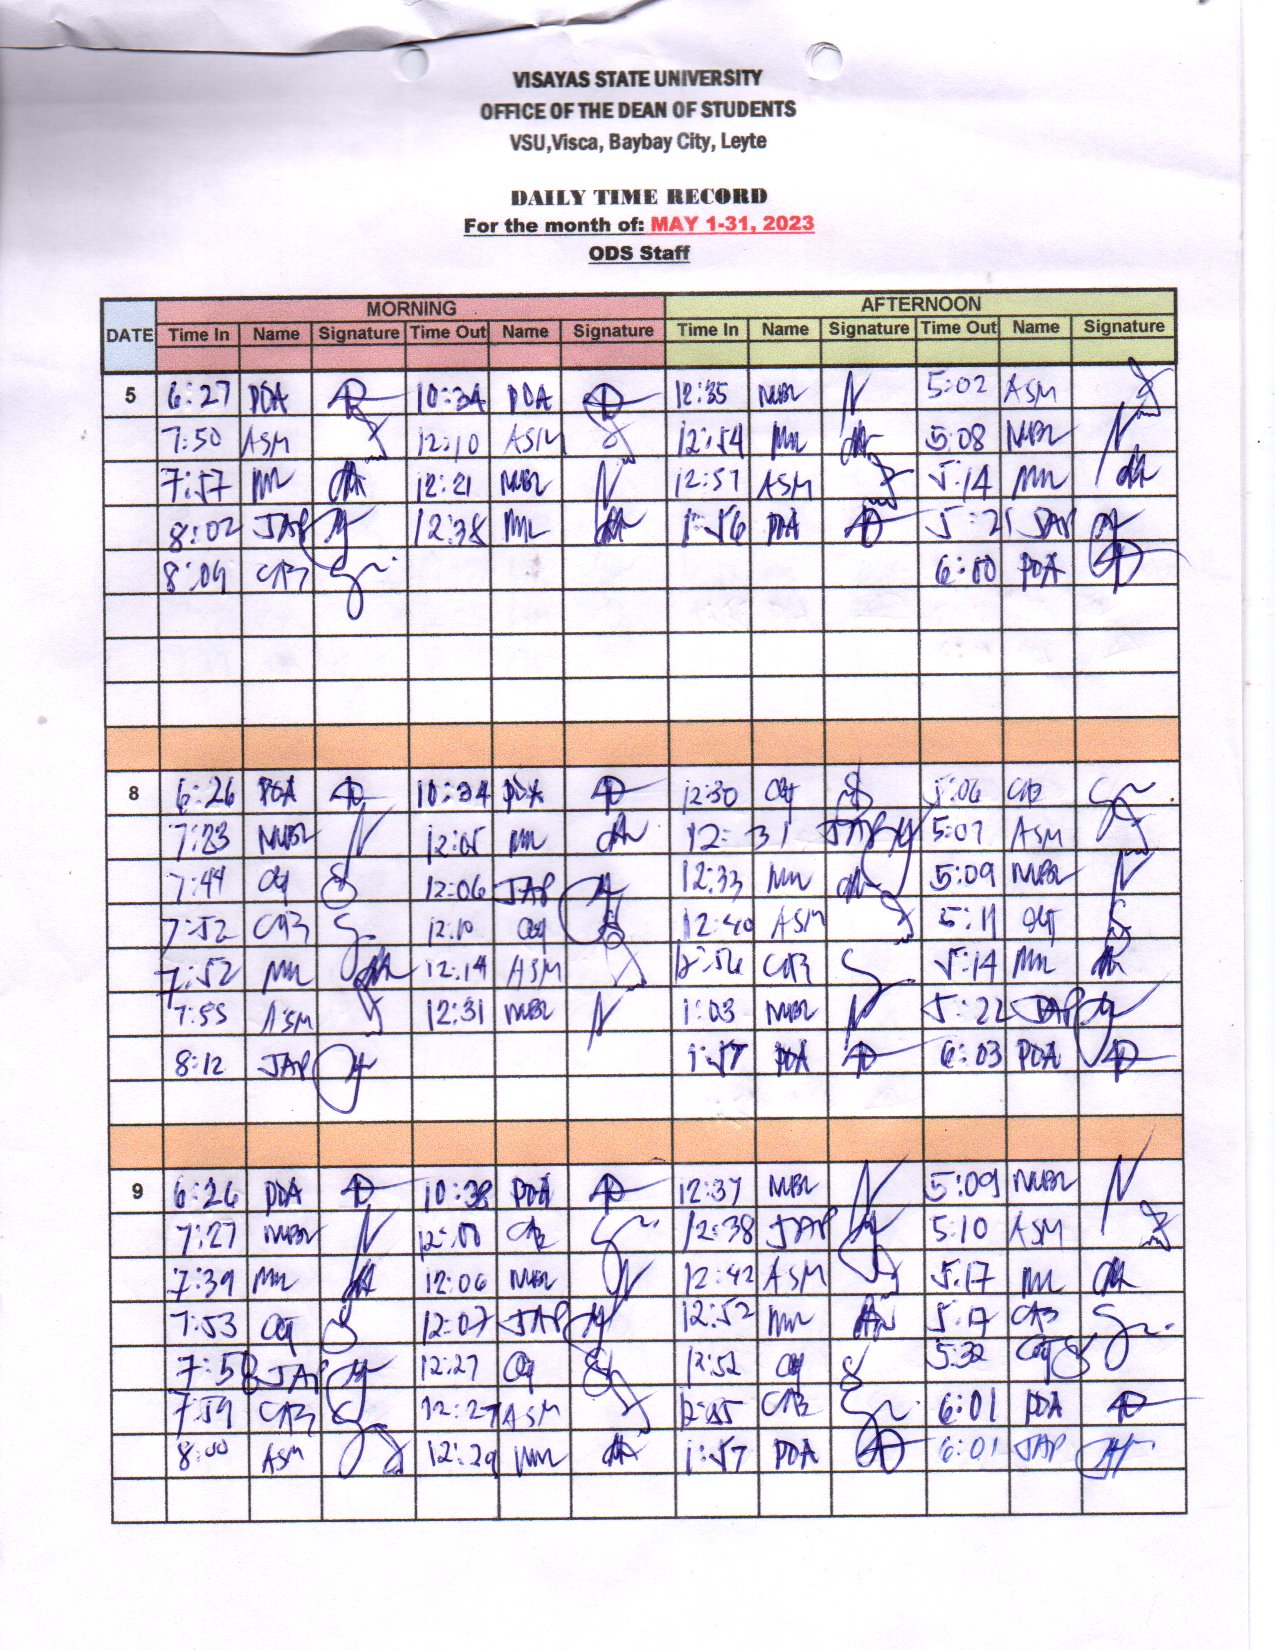 VISAYAS STATE UNIVERSITY
OFFICE OF THE DEAN OF STUDENTS
VSU,Visca, Baybay City, Leyte
DAILY TIME RECORD
For the month of: MAY 1-31, 2023
ODS Staff
MORNING AFTERNOON
DATE Time In Name Signature Time Out Name Signature Time In Name Signature Time Out Name Signature
5 6:27 PDA 10:34 PDA 12:35 NUBL 5:02 ASM
7:50 ASM 12:10 ASM 12:54 5:08 NUBL
7:57 12:21 NUBL 12:57 ASM 5:14
8:02 JAP 12:38 1:56 PDA 5:21 JAP
8:09 CAB 6:00 PDA
8 6:26 PDA 10:34 PDA 12:30 5:06 CAB
7:23 NUBL 12:05 12:31 JAP 5:07 ASM
7:44 12:06 JAP 12:33 5:09 NUBL
7:52 CAB 12:10 12:40 ASM 5:11
7:52 12:14 ASM 12:56 CAB 5:14
7:55 ASM 12:31 NUBL 1:03 NUBL 5:22 JAP
8:12 JAP 1:57 PDA 6:03 PDA
9 6:26 PDA 10:38 PDA 12:37 NUBL 5:09 NUBL
7:27 NUBL 12:00 CAB 12:38 JAP 5:10 ASM
7:39 12:06 NUBL 12:42 ASM 5:17
7:53 12:07 JAP 12:52 5:17 CAB
7:58 JAP 12:27 12:52 5:32
7:59 CAB 12:27 ASM 12:55 CAB 6:01 PDA
8:00 ASM 12:29 1:57 PDA 6:01 JAP